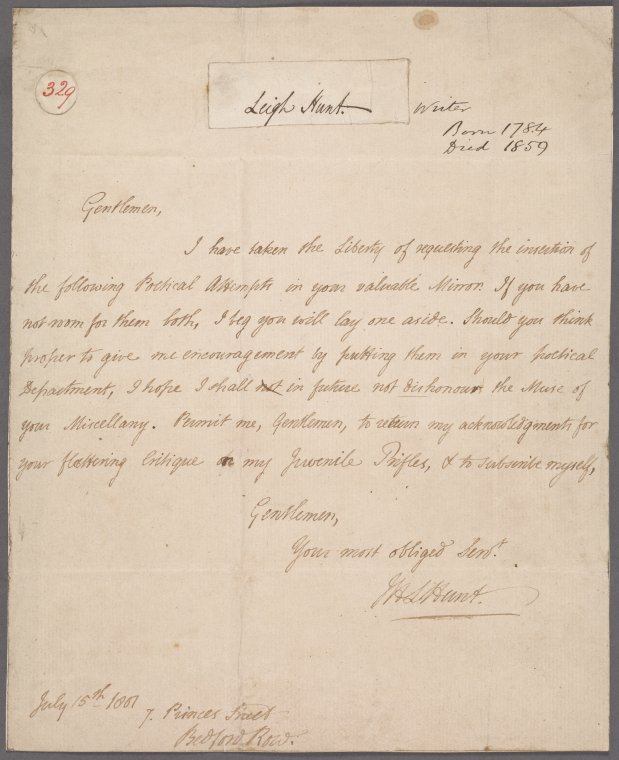 329
Leigh Hunt. Writer
Born 1784
Died 1859
Gentlemen,
I have taken the Liberty of requesting the insertion of
the following Poetical Attempts in your valuable Mirror. If you have
not room for them both, I beg you will lay one aside. Should you think
proper to give me encouragement by putting them in your poetical
Department, I hope I shall not in future not dishonour the Muse of
your Miscellany. Permit me, Gentlemen, to return my acknowledgments for
your flattering Critique on my Juvenile Trifles, & to subscribe myself,
Gentlemen,
Your most obliged Servt.
JHL Hunt.
July 15th 1801
7. Princes Street
Bedford Row.